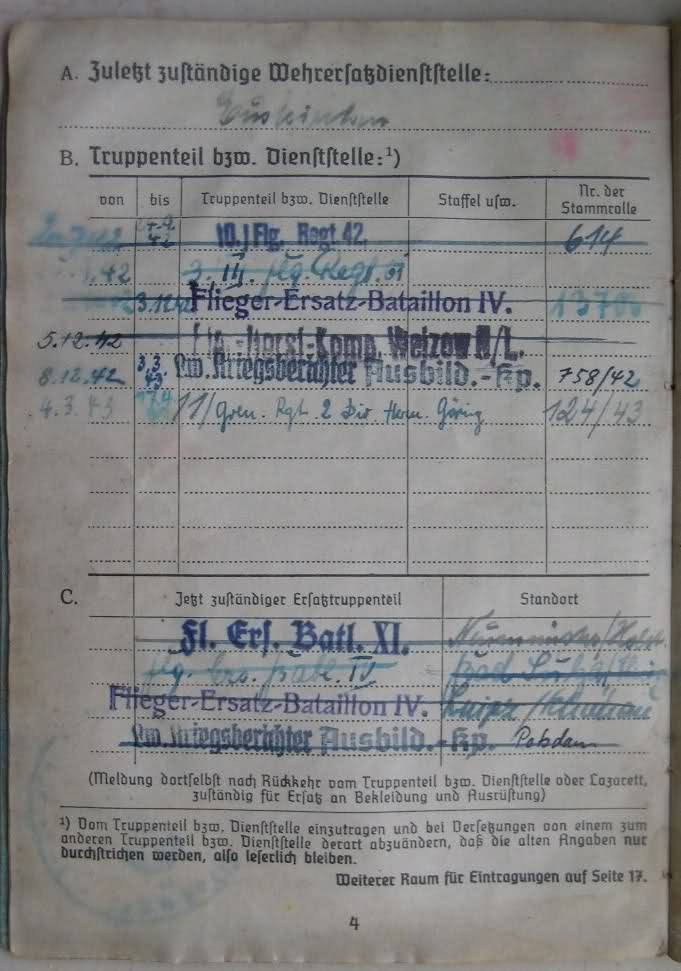 A. Zuletzt zuständige Wehrersatzdienststelle:
Euskirchen
B. Truppenteil bzw. Dienststelle:¹)
von bis Truppenteil bzw. Dienststelle Staffel usw. Nr. der Stammrolle
10.) Flg. Regt 42. 614
.42 3. III. Flg. Regt.
3.12.42 Flieger-Ersatz-Bataillon IV.
5.12.42 -Horst-Komp. Welzow N/L.
8.12.42 3.3. 43 Lw. Kriegsberichter Ausbild.-Kp. 758/42
4.3.43 11/ Gren. Rgt. 2 Div. Herm. Göring 124/43
C. Jetzt zuständiger Ersatztruppenteil Standort
Fl. Ers. Batl. XI.
Flg. Ers. Batl. IV Bad
Flieger-Ersatz-Bataillon IV.
Lw. Kriegsberichter Ausbild.-Kp. Potsdam
(Meldung dortselbst nach Rückkehr vom Truppenteil bzw. Dienststelle oder Lazarett,
zuständig für Ersatz an Bekleidung und Ausrüstung)
¹) Vom Truppenteil bzw. Dienststelle einzutragen und bei Versetzungen von einem zum
anderen Truppenteil bzw. Dienststelle derart abzuändern, daß die alten Angaben nur
durchstrichen werden, also leserlich bleiben.
Weiterer Raum für Eintragungen auf Seite 17.
4